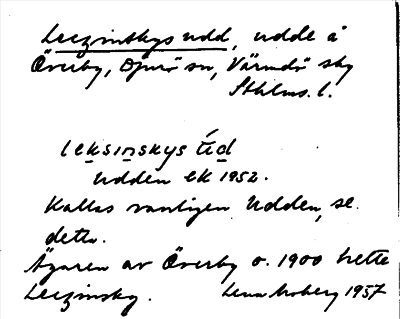 Leczinskys udd, udde å
Överby, Djurö sn, Värmdö sky
Sthlms. l.
leksinskys úd
udden ek 1952.
Kallas vanligen Udden, se
detta.
Ägaren av Överby o. 1900 hette
Leczinsky. Lena Moberg 1957